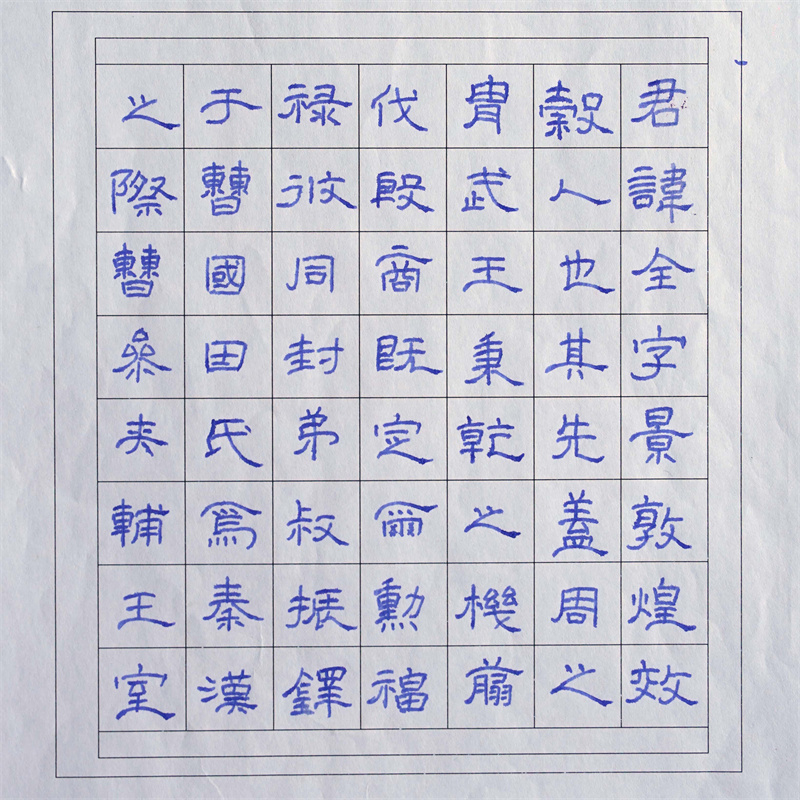 君諱全字景敦煌效
穀人也其先蓋周之
胄武王秉乾之機翦
伐殷商既定爾勳福
禄攸同封弟叔振鐸
于曹國因氏焉秦漢
之際曹參夾輔王室